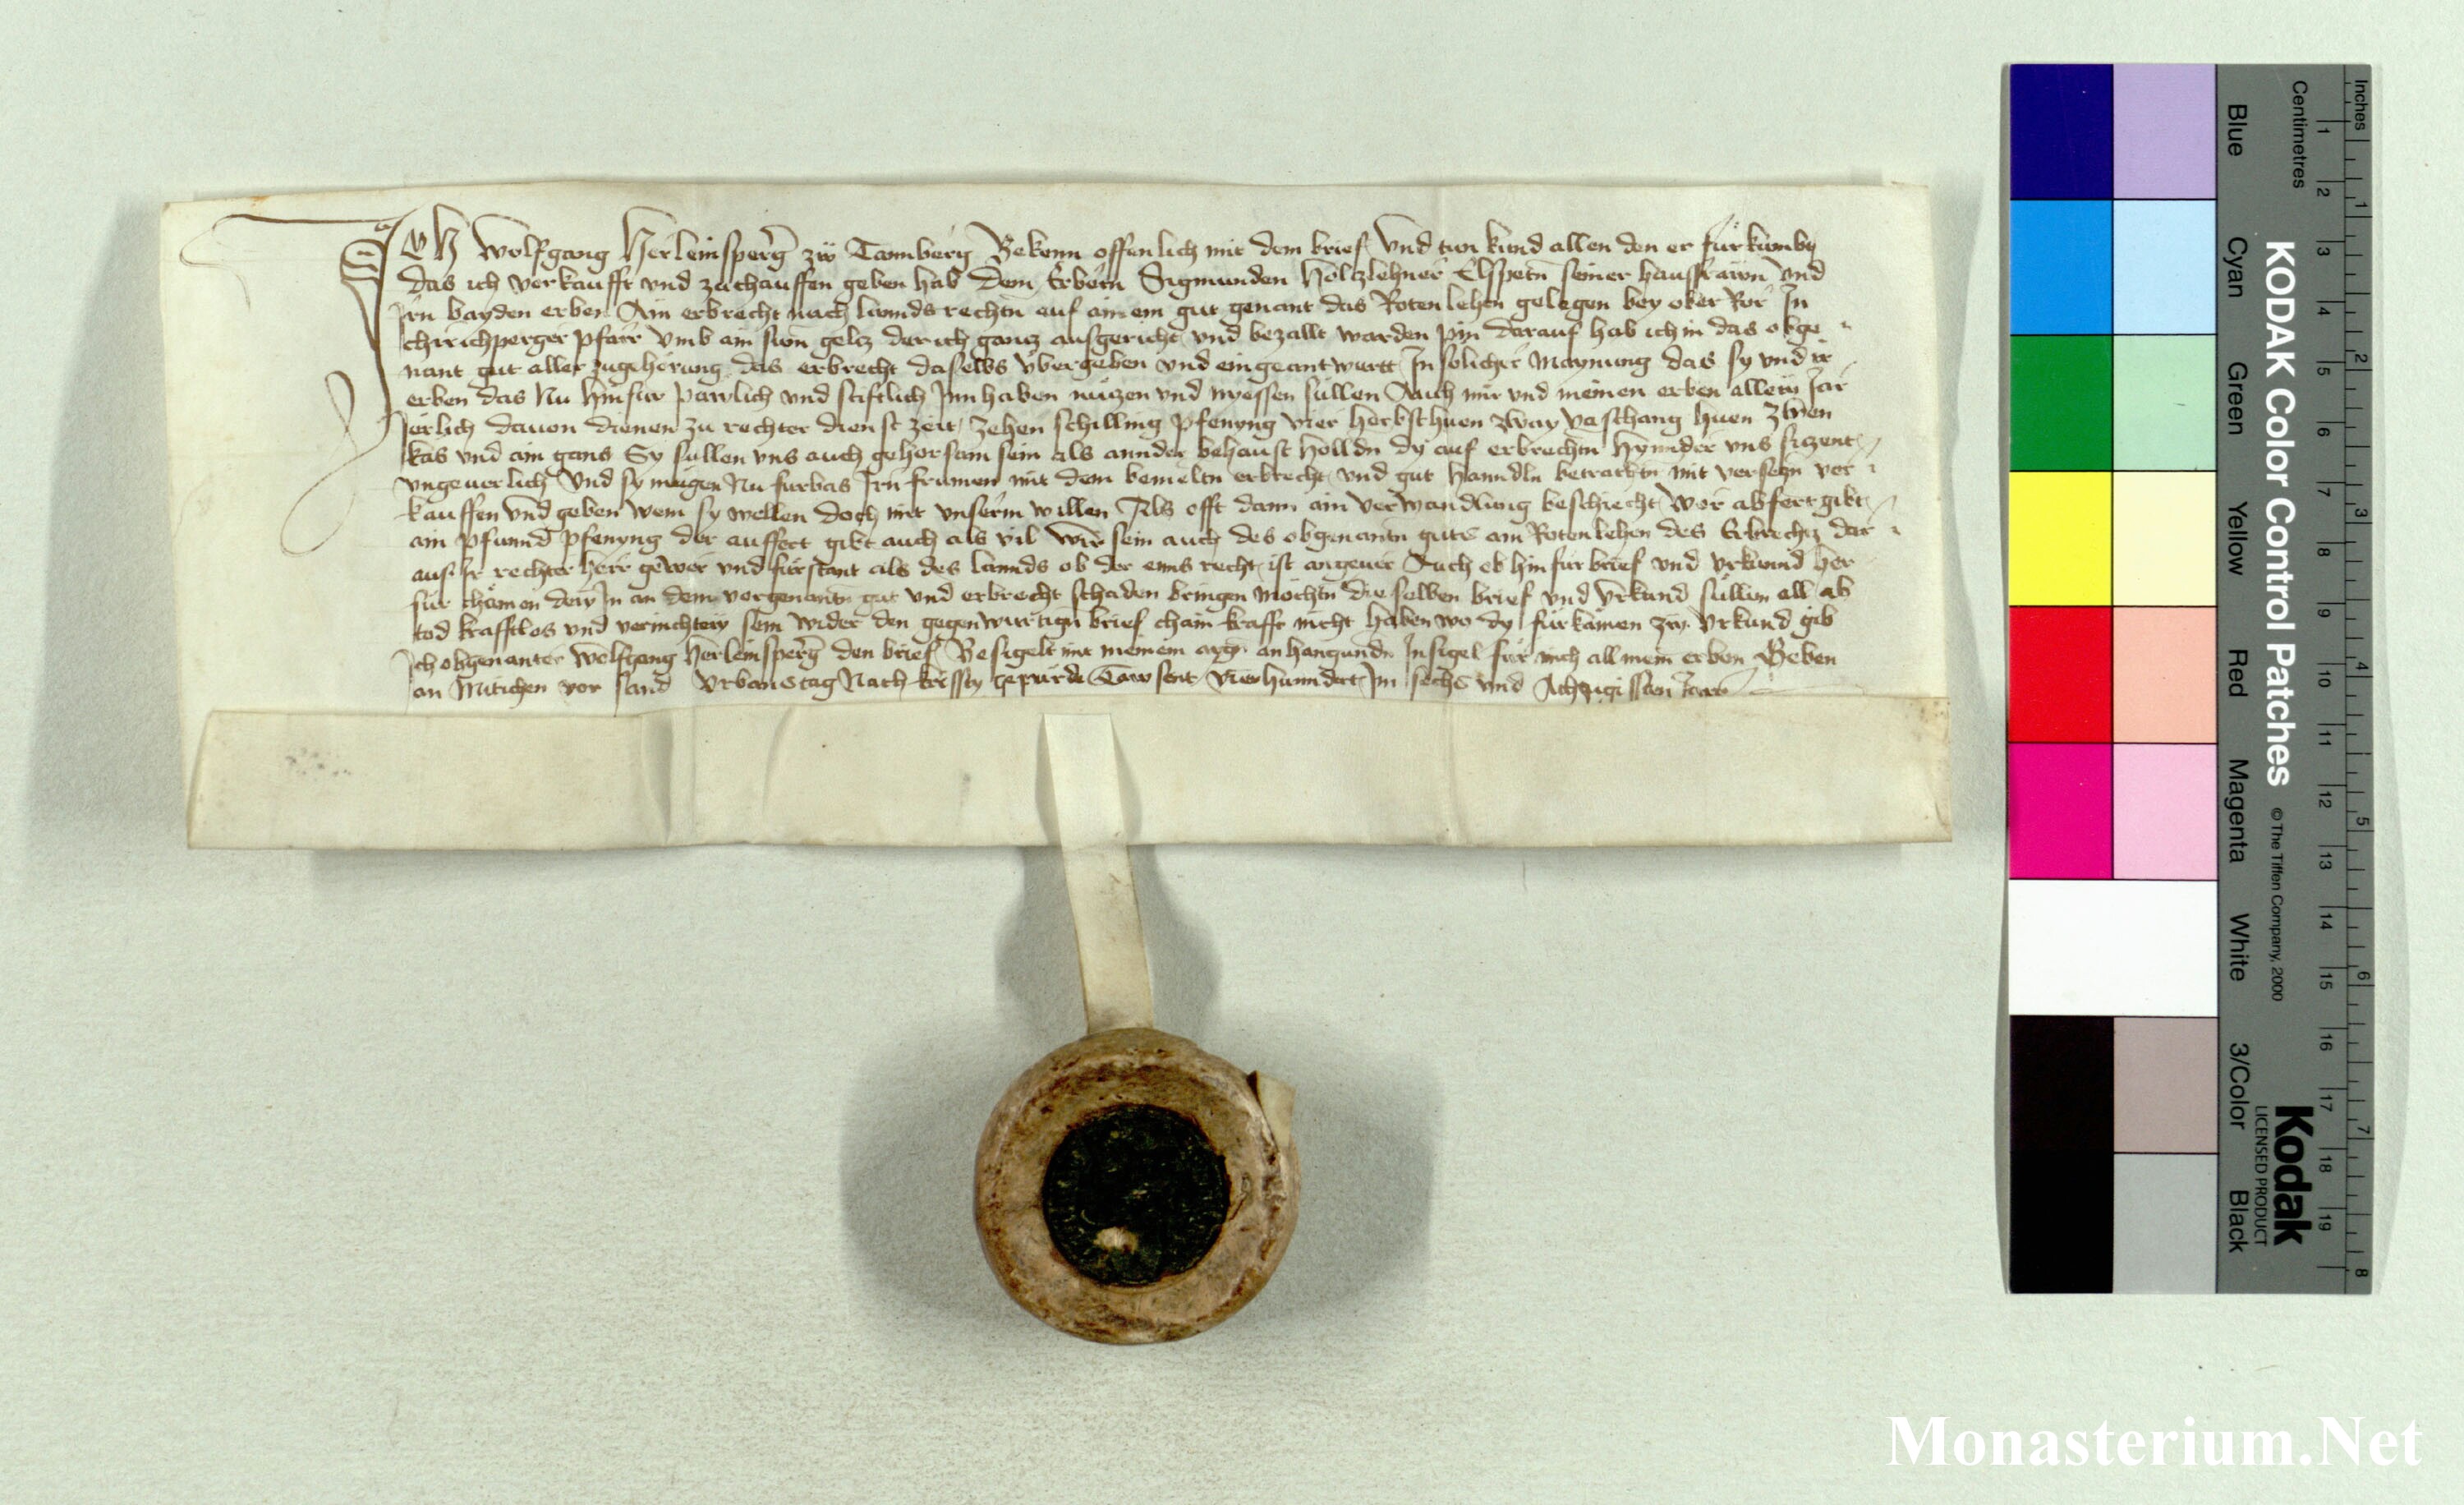 Ich Wolfgang Herleinsperg̃ zw Tannberg Bekenn offenlich mit dem brief Vnd tun kund allen den er fürkumbt
das ich verkaufft vnd zuchauffen geben hab Dem Erbern Sigmunden Holtzlehner Elspetn seiner hausfrawn Vnd
Irn bayden erben Ain erbrecht nach lannds rechtn auf ainem gut genant das Rotenlehen gelegen bey ober Ror In
chirichperger pfarr Vmb ain sum geltz der ich gantz ausgericht vnd bezallt warden pin darauf hab ich in das obge
nant gut aller zugehorung das erbrecht daselbs vbergeben vnd eingeantwurtt In solicher maynung das sy vnd ir
erben das Nu hinfur pawlich vnd stiftlich Inn haben nutzen vnd nyessen sullen Auch mir vnd meinen erben allew Jar
Jerlich dauon dienen zu rechter dienst zeit zehen schilling pfenyng vier herbsthuen zway vaschang huen zwen
kas vnd ain gans Sy sullen vns auch gehorsam sein als annder behaust holldn dy auf erbrechtn hynnder vns sizent
vngeuerlich Vnd sy mugen Nu furbas Irn frumen mit dem bemeltn erbrecht vnd gut hanndln betrachtn mit versetzn ver
kauffen vnd geben wem sy wellen doch mit vnserm willen Als offt dann ain verwandlung beschiecht Wer abfert gibt
ain pfunnd pfenyng der auffert gibt auch als vil Wir sein auch des obgenantn guts am Rotenlehen des Erbrechtz dar
auf Ir rechter herr gewer vnd fürstant als des lannds ob der enns recht ist angeuer Auch ob hinfur brief vnd vrkunnd her
für chämen dew In an dem vorgenantn gut vnd erbrecht schaden bringen möchtn dieselben brief vnd Vrkund süllen all ab
tod krafftlos vnd vernichtew sein wider den gegenwurtign brief chain krafft nicht haben wo dy fürkämen zw Vrkund gib
Ich obgenanter Wolfgang Herleinsperg̃ den brief Besigelt mit meinem aygn anhangundn Insigel für mich all mein erben Geben
an Mitichen vor sand Vrbanstag Nach kristy gepurde Tawsent Vierhunndert Im sechs vnd Achtzigisten Jare
KODAK Color Control Patches
© The Tiffen Company, 2000
Kodak
LICENSED PRODUCT
Inches
Centimetres
1 2 3 4 5 6 7 8 9 10 11 12 13 14 15 16 17 18 19
1 2 3 4 5 6 7 8
Blue
Cyan
Green
Yellow
Red
Magenta
White
3/Color
Black
Monasterium.Net